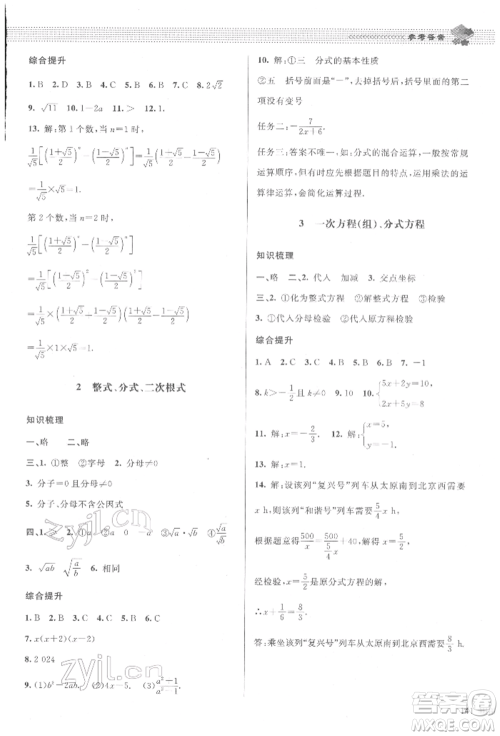 参考答案
综合提升
1. B  2. D  3. C  4. B  5. A  6. C  7. B  8. C
9. √11  10. 1-2a  11. >  12. 1.
13. 解:第 1 个数,当 n=1 时,
1/√5[((1+√5)/2)^n-((1-√5)/2)^n]
=1/√5((1+√5)/2-(1-√5)/2)
=1/√5×√5=1.
第 2 个数,当 n=2 时,
1/√5[((1+√5)/2)^n-((1-√5)/2)^n]
=1/√5[((1+√5)/2)²-((1-√5)/2)²]
=1/√5×((1+√5)/2+(1-√5)/2)((1+√5)/2-(1-√5)/2)
=1/√5×1×√5=1.
2 整式、分式、二次根式
知识梳理
一、略  二、略
三、1. ①整  ②字母  2. ①分母≠0
3. 分子=0 且分母≠0
5. 分子、分母不含公因式
四、1. 2. ①a  0  -a  ②√a·√b  √a/√b
3. √ab  √(a/b)  6. 相同
综合提升
1. B  2. B  3. C  4. B  5. C  6. C
7. x(x+2)(x-2)
8. 2 024
9. (1)b²-2ab.
10. 解:①三  分式的基本性质
②五  括号前面是“-”,去掉括号后,括号里的第二
项没有变号
任务二:-7/(2x+6).
任务三:答案不唯一,如:分式的混合运算,常规的
运算顺序,但有时根据题目的特点,运用乘法的运
算律,会简化运算过程.
3 一次方程(组)、分式方程
知识梳理
一、略  二、2. 代入  加减  3. 交点坐标
三、2. 1. ①化为整式方程  ②解整式方程  ③检验
2. ①代入分母检验  ②代入原方程检验
综合提升
1. A  2. C  3. D  4. A  5. B  6. B  7. -1
8. k>-1/2且 k≠0  9. 10  10. {5x+2y=10, 2x+5y=8
11. 解:x=-2/3.
13. 解:x=5/2.
14. 解:设该列“复兴号”列车从太原南到北京西需要
x h,则设该列“和谐号”列车从太原南到北京西需要
根据题意得
经检验,x=5/2是原分式方程的解
∴x+1/6=8/3.
答:乘坐该列“复兴号”列车从太原南到北京西需要8/3 h.
zyjl.cn
zyjl.cn